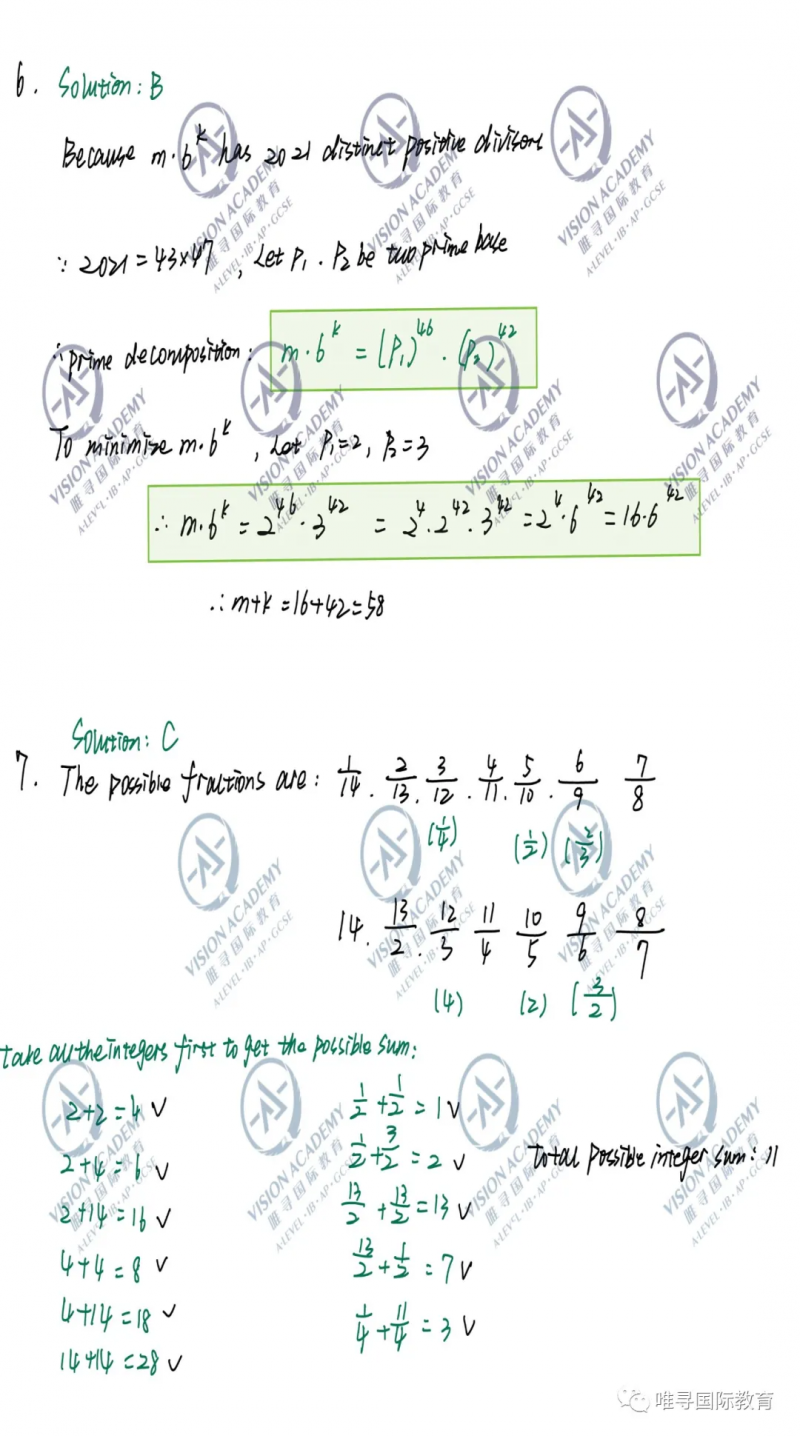 6. Solution: B
Because m·6^k has 2021 distinct positive divisors
∵ 2021 = 43×47, Let P₁, P₂ be two prime base
∴ prime decomposition: m·6^k = (P₁)^46 · (P₂)^42
To minimise m·6^k, Let P₁=2, P₂=3
∴ m·6^k = 2^46 · 3^42 = 2^4 · 2^42 · 3^42 = 2^4 · 6^42 = 16·6^42
∴ m+k = 16+42 = 58
Solution: C
7. The possible fractions are: 1/14. 2/13. 3/12. 4/11. 5/10. 6/9 7/8
(1/4) (1/2) (2/3)
14. 13/2. 12/3 11/4 10/5 9/6 8/7
(4) (2) (3/2)
take all the integers first to get the possible sum:
2+2=4 √ 1/2 + 1/2 = 1 √
2+4=6 √ 1/2 + 3/2 = 2 √ total possible integer sum: 11
2+14=16 √ 13/2 + 13/2 = 13 √
4+4=8 √ 13/2 + 1/2 = 7 √
4+14=18 √ 1/4 + 11/4 = 3 √
14+14=28 √
VISION ACADEMY
唯寻国际教育
A-LEVEL·IB·AP·GCSE
唯寻国际教育